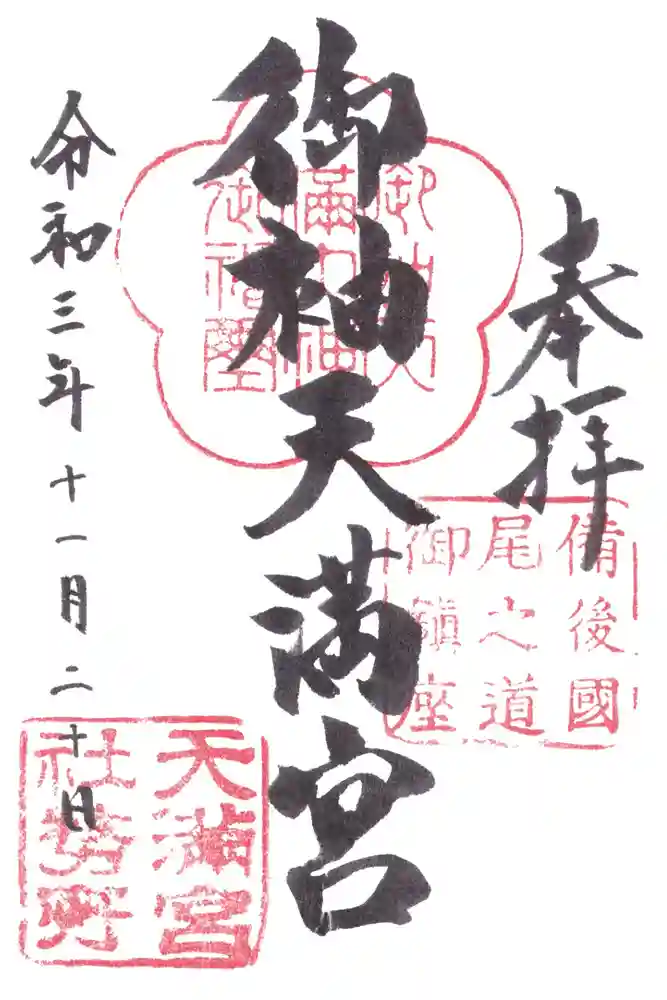 奉拝
備後國
尾之道
御鎮座
御袖天満宮
御袖天
満宮御
令和三年十一月二十日
天満宮
社務所